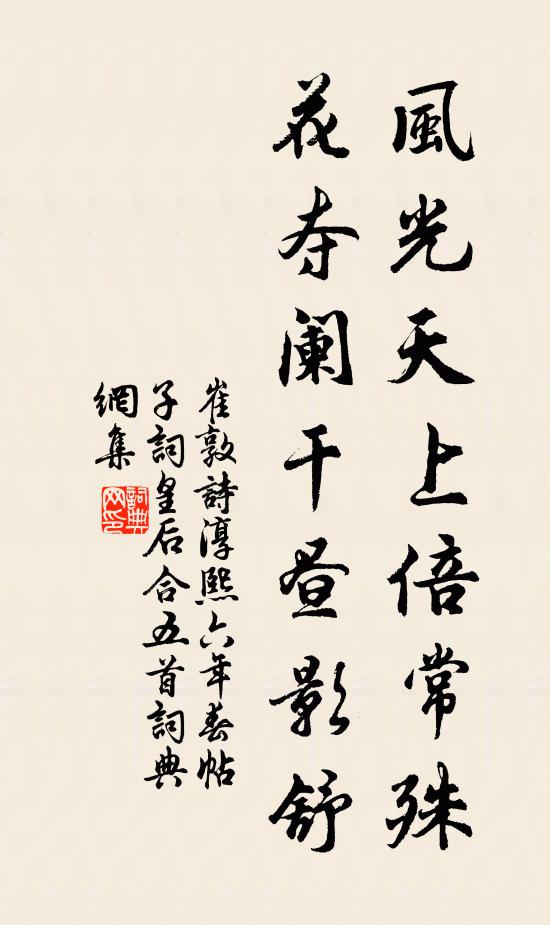 風光天上倍常殊
花夺闌干昼影舒
崔敦詩淳熙六年春帖
子詞皇后合五首詞典
網集
詞典
网印